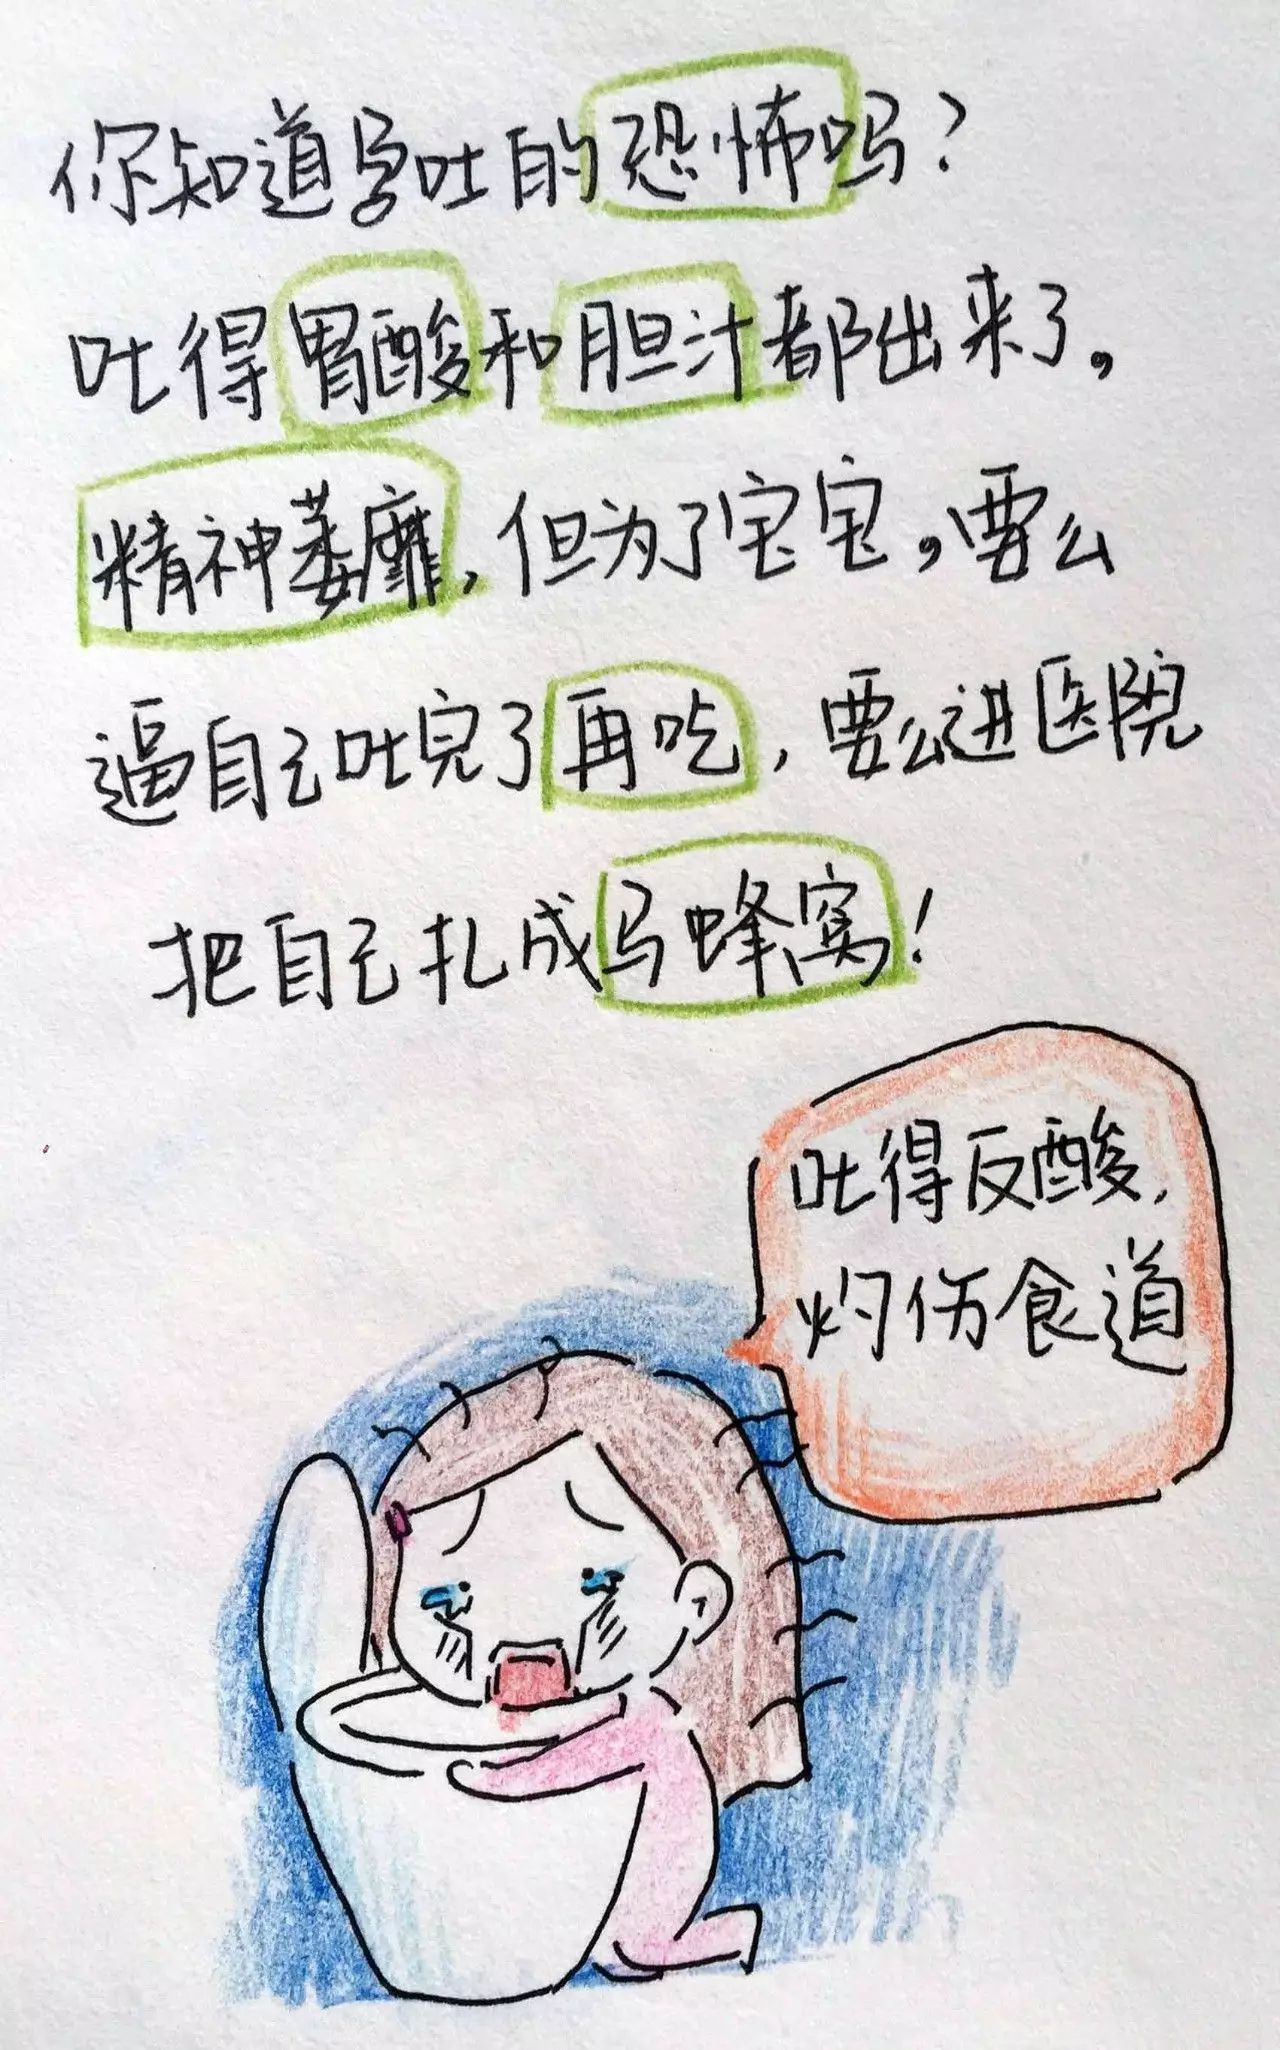 你知道孕吐的恐怖吗？
吐得胃酸和胆汁都出来了，
精神萎靡，但为了宝宝，要么
逼自己吐完了再吃，要么进医院
把自己扎成马蜂窝！
吐得反酸，
灼伤食道